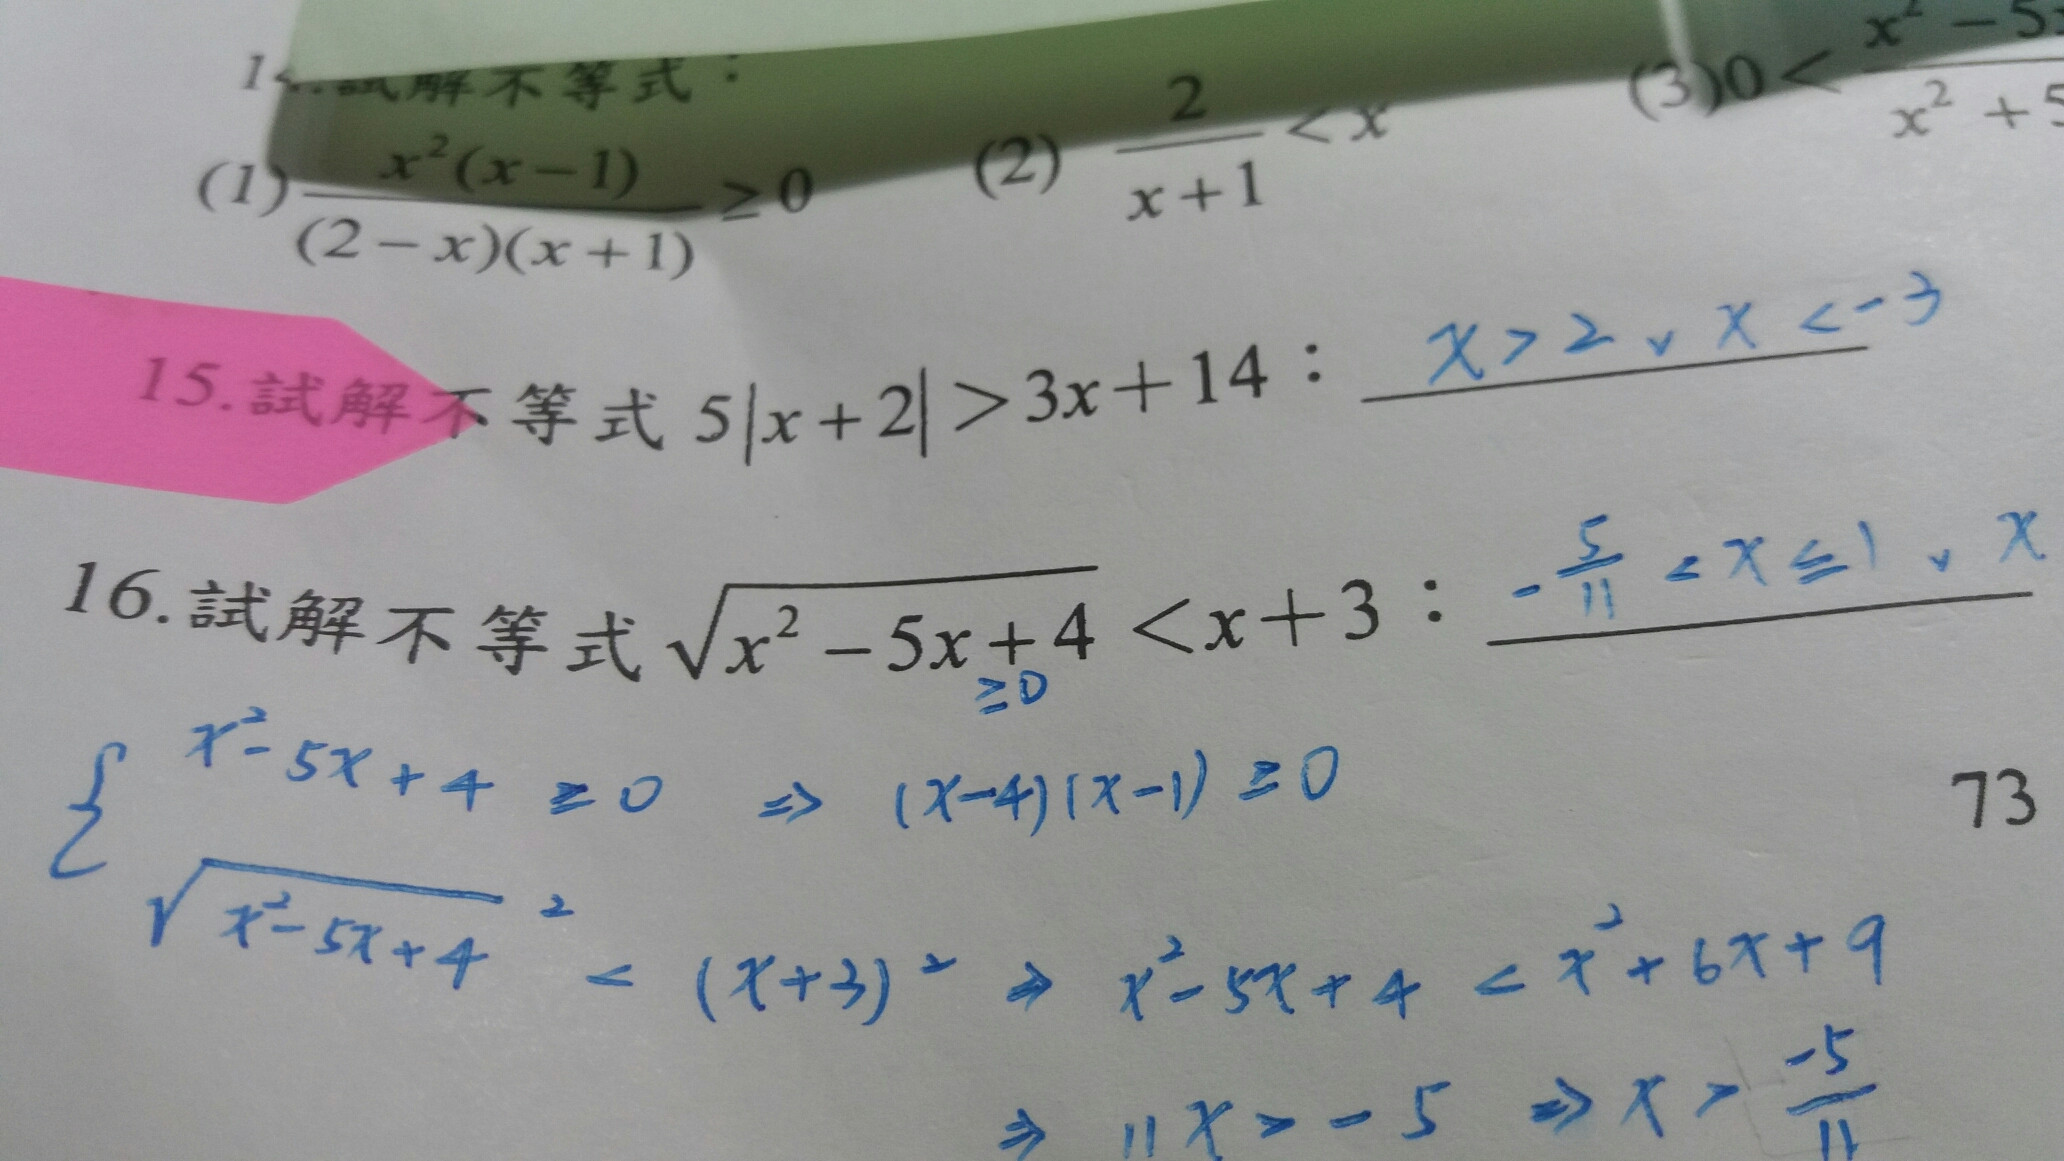 14.試解不等式：
(1) x²(x-1)/(2-x)(x+1) ≥0 (2) 2/x+1 <x (3)0< x²-5x/x²+5
15.試解不等式 5|x+2|>3x+14： x>2 ∨ x<-3
16.試解不等式 √x²-5x+4 <x+3： -5/11 < x ≤ 1 ∨ x
≥0
{ x²-5x+4 ≥0 ⇒ (x-4)(x-1) ≥0
73
√x²-5x+4 ² < (x+3)² ⇒ x²-5x+4 < x²+6x+9
⇒ 11x > -5 ⇒ x > -5/11